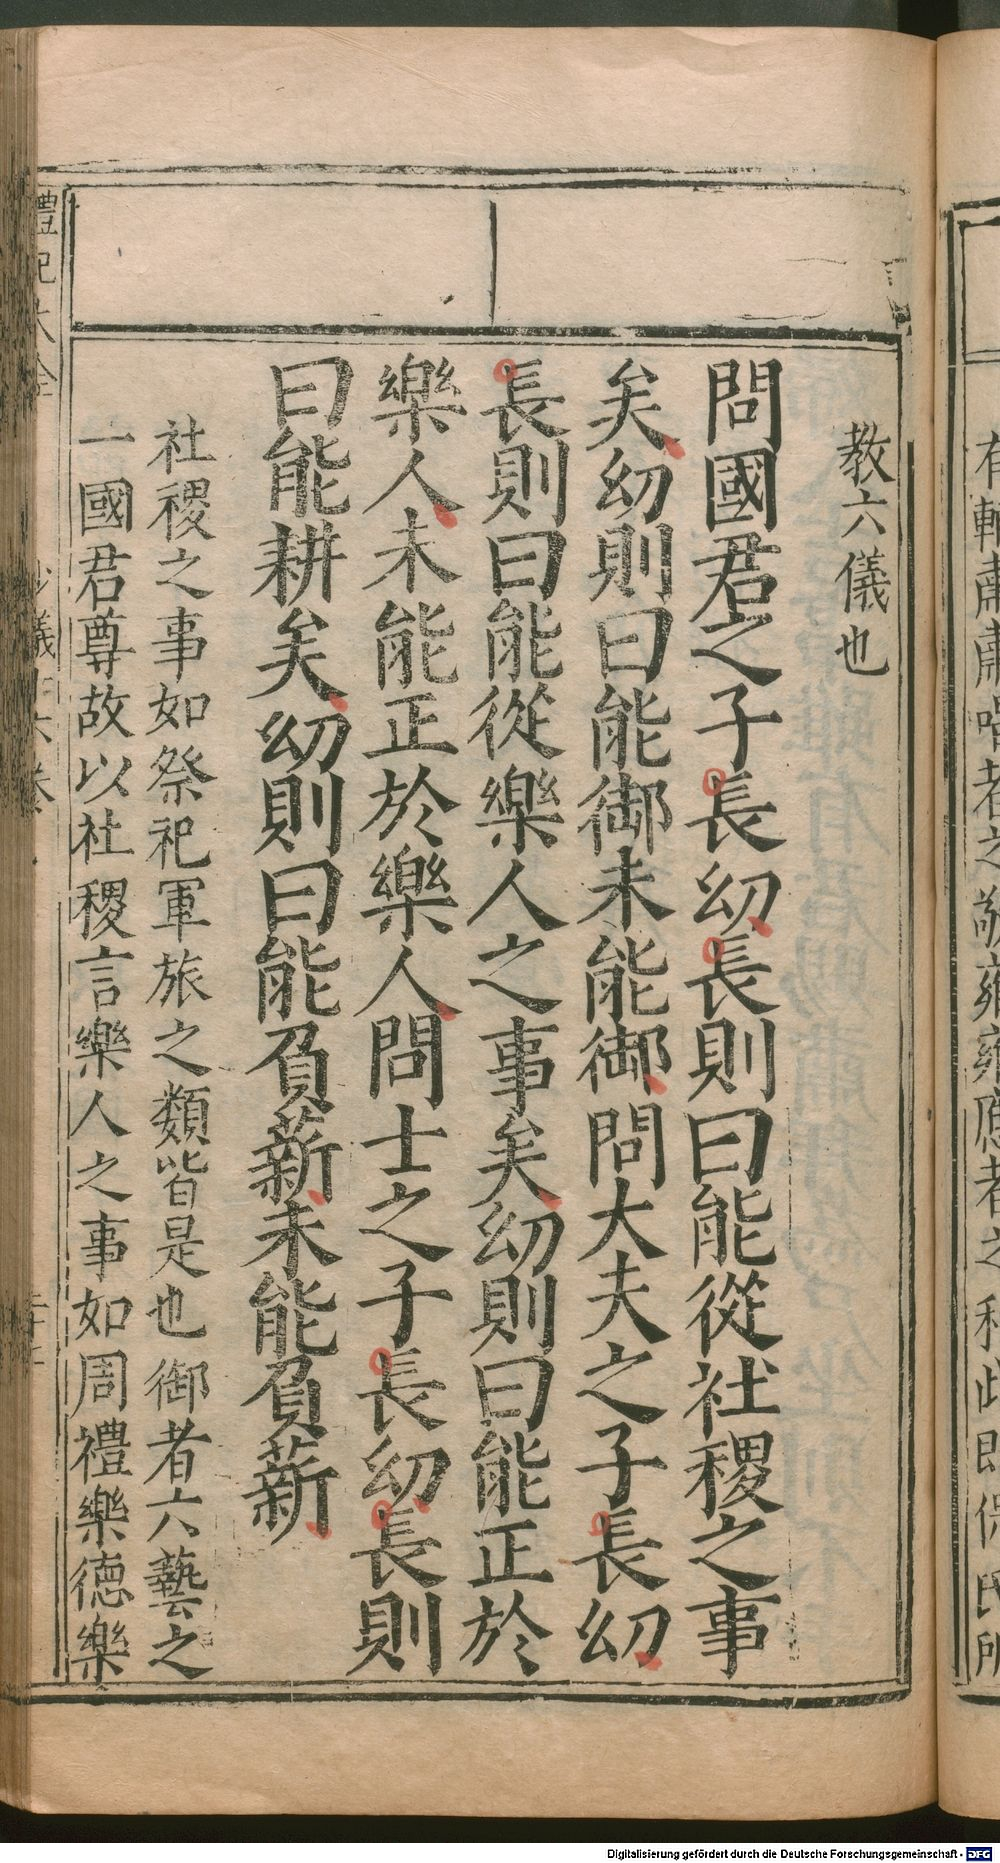 教六儀也
問國君之子長㓜長則曰能從社稷之事
矣㓜則曰能御未能御問大夫之子長㓜
長則曰能從樂人之事矣㓜則曰能正於
樂人未能正於樂人問士之子長㓜長則
曰能耕矣㓜則曰能負薪未能負薪
社稷之事如祭祀軍旅之類皆是也御者六藝之
一國君尊故以社稷言樂人之事如周禮樂德樂
禮記大全
少儀
者之敬
應者之
利此即保氏所
Digitalisierung gefördert durch die Deutsche Forschungsgemeinschaft - DFG